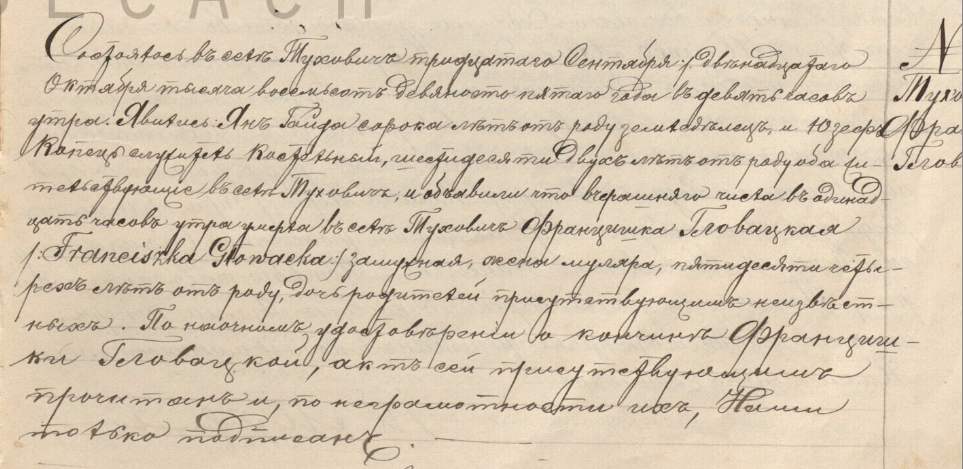 DECACH
Состоялось въ селѣ Туховичъ тридцатаго Сентября /двѣнадцатаго
Октября тысяча восемьсотъ девяносто пятаго года въ девять часовъ
утра. Явились: Янъ Гайда сорока лѣтъ отъ роду земледѣлецъ, и Юзефъ
Копець служитель Костельный, шестидесяти двухъ лѣтъ отъ роду оба жи-
тельствующіе въ селѣ Туховичъ, и объявили что вчерашняго числа въ одинад-
цать часовъ утра умерла въ селѣ Туховичъ Францишка Гловацкая
/: Franciszka Głowacka :/ замужная, жена муляра, пятидесяти четы-
рехъ лѣтъ отъ роду, дочь родителей присутствующимъ неизвѣст-
ныхъ. По наочномъ удостовѣреніи о кончинѣ Францишки-
ки Гловацкой, актъ сей присутствующимъ
прочитанъ и, по неграмотности ихъ, Нами
только подписанъ.
N
Тухо
Фра
Глов